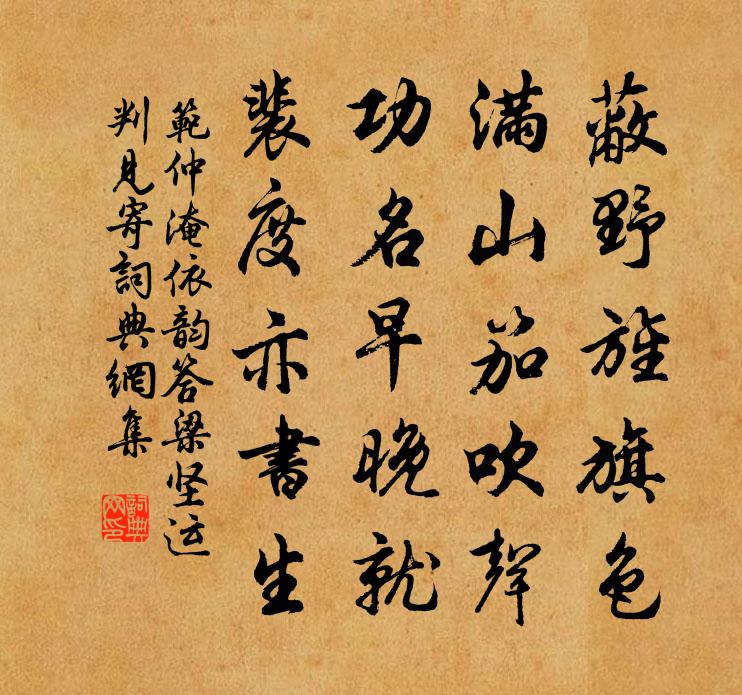 蔽野旌旗色
满山笳吹聲
功名早晚就
裴度亦書生
範仲淹依韵答梁坚运
判見寄詞典網集
詞典网印